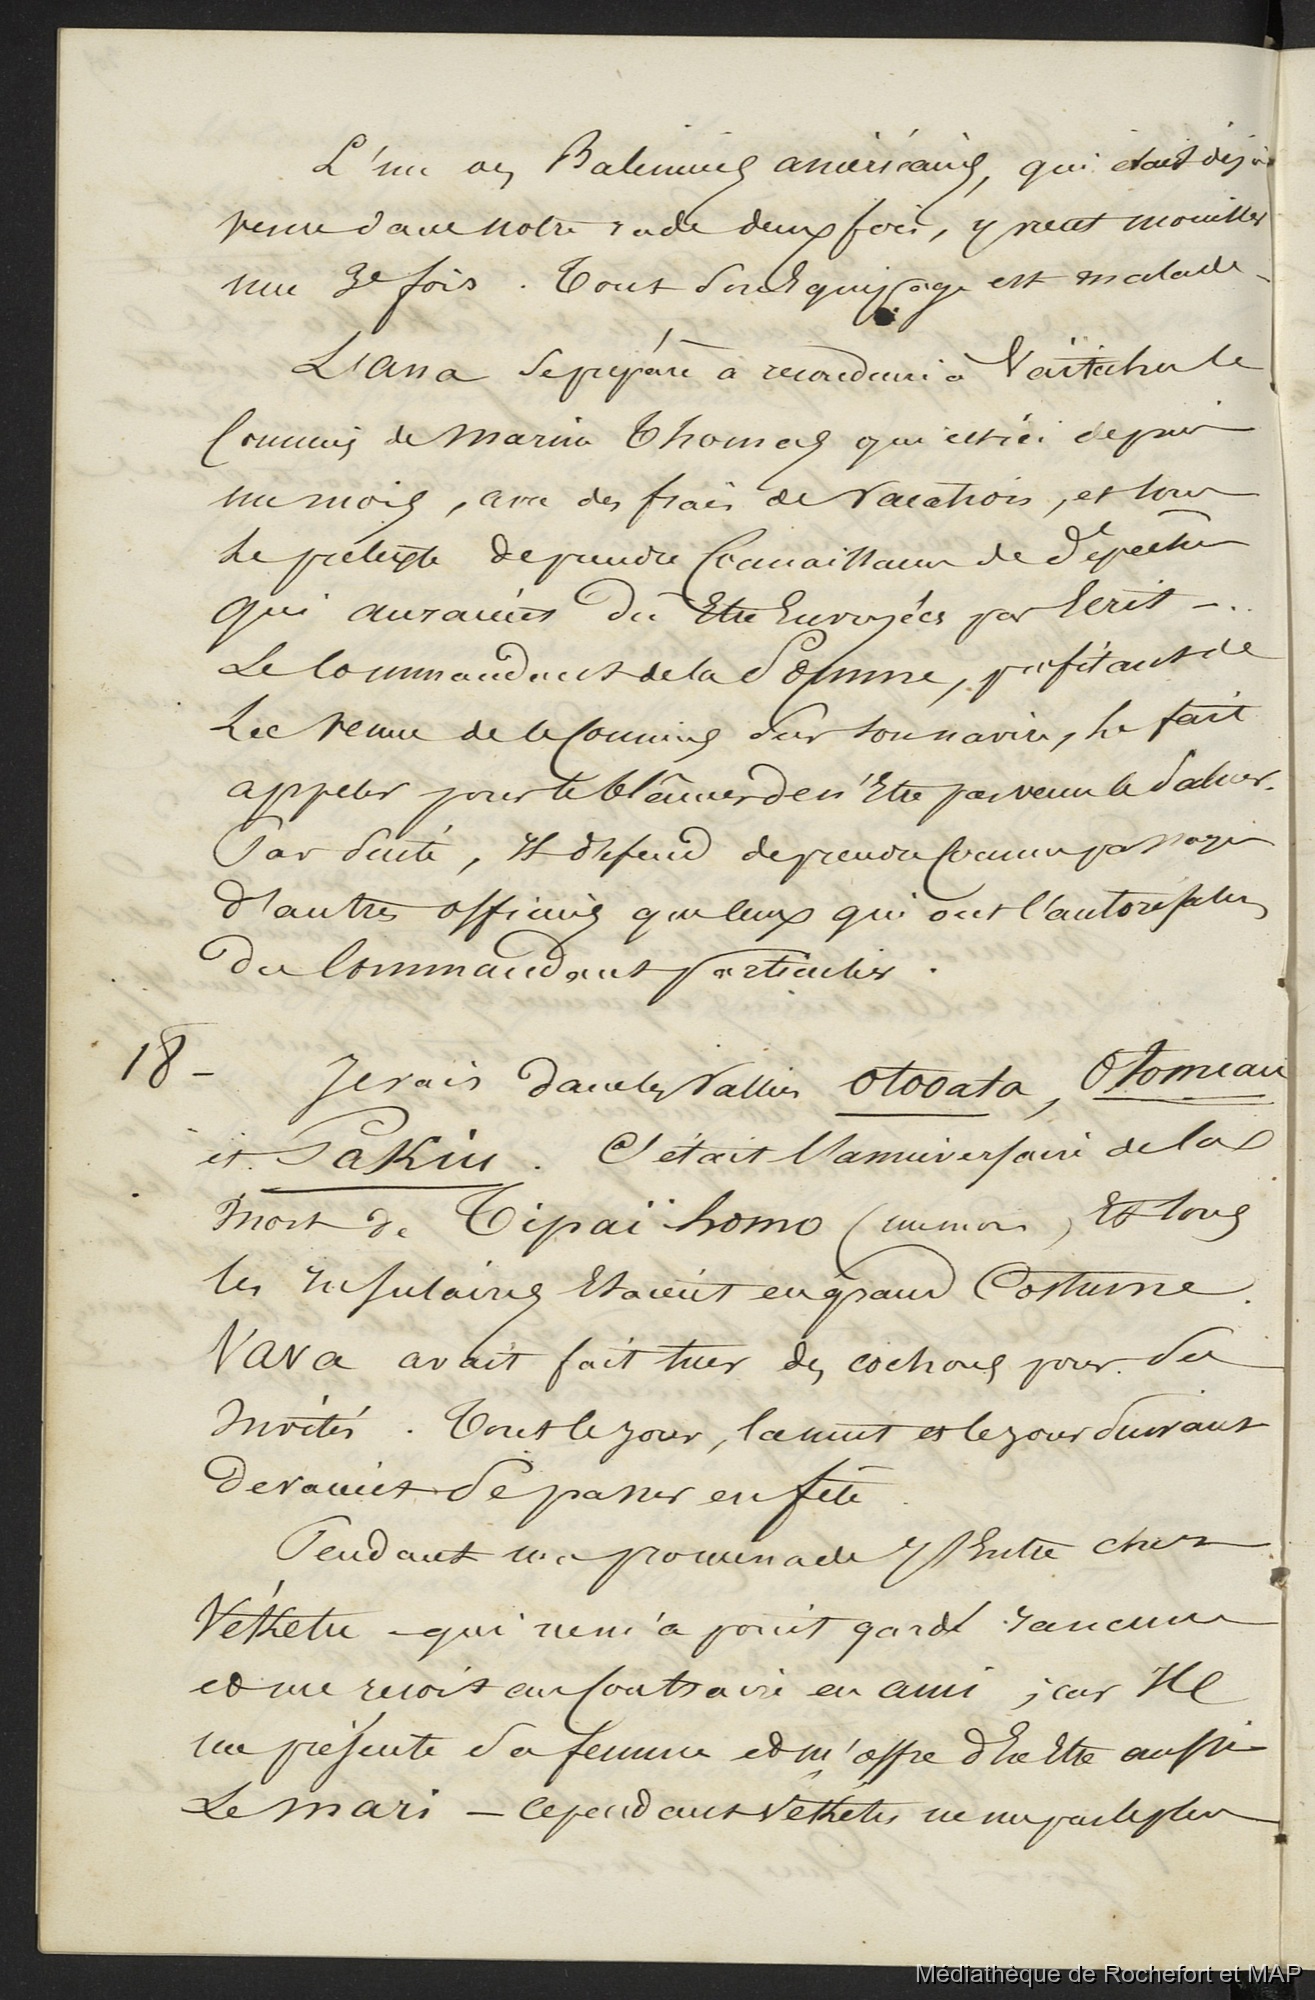 L'un des Baleiniers américains, qui était déjà
venu dans notre rade deux fois, y vient mouiller
une 3e fois. Tout son Equipage est malade -
L'Ana se prépare à reconduire à Vaïtahu le
Commis de Marine Thomas qui est ici depuis
un mois, avec des frais de vacations, et sous
le prétexte de prendre Connaissance de dépêches
qui auraient du Etre Envoyées par Ecrit - .
Le Commandant de la Somme, profitant de
la venue de ce Commis sur son navire, le fait
appeler pour le blâmer de n'Etre pas venu le saluer.
Par suite, Il défend de prendre Comme passager
d'autres officiers que ceux qui ont l'autorisation
du Commandant particulier.
18 - Je vais dans les Vallées Otooata, Otomeau
et Pakiu. C'était l'anniversaire de la
Mort de Tipaï homo (un mois) Et tous
les Insulaires Etaient en grand Costume.
Vava avait fait tuer des cochons pour ses
Invités. Tout le jour, la nuit et le jour suivant
devaient se passer en fête.
Pendant ma promenade J'Entre chez
Vékétu - qui ne m'a point gardé rancune
et me reçoit au Contraire en ami ; car Il
me présente sa femme et m'offre d'en Etre aussi
Le mari - Cependant Vékétu ne me parle plus
Médiathèque de Rochefort et MAP